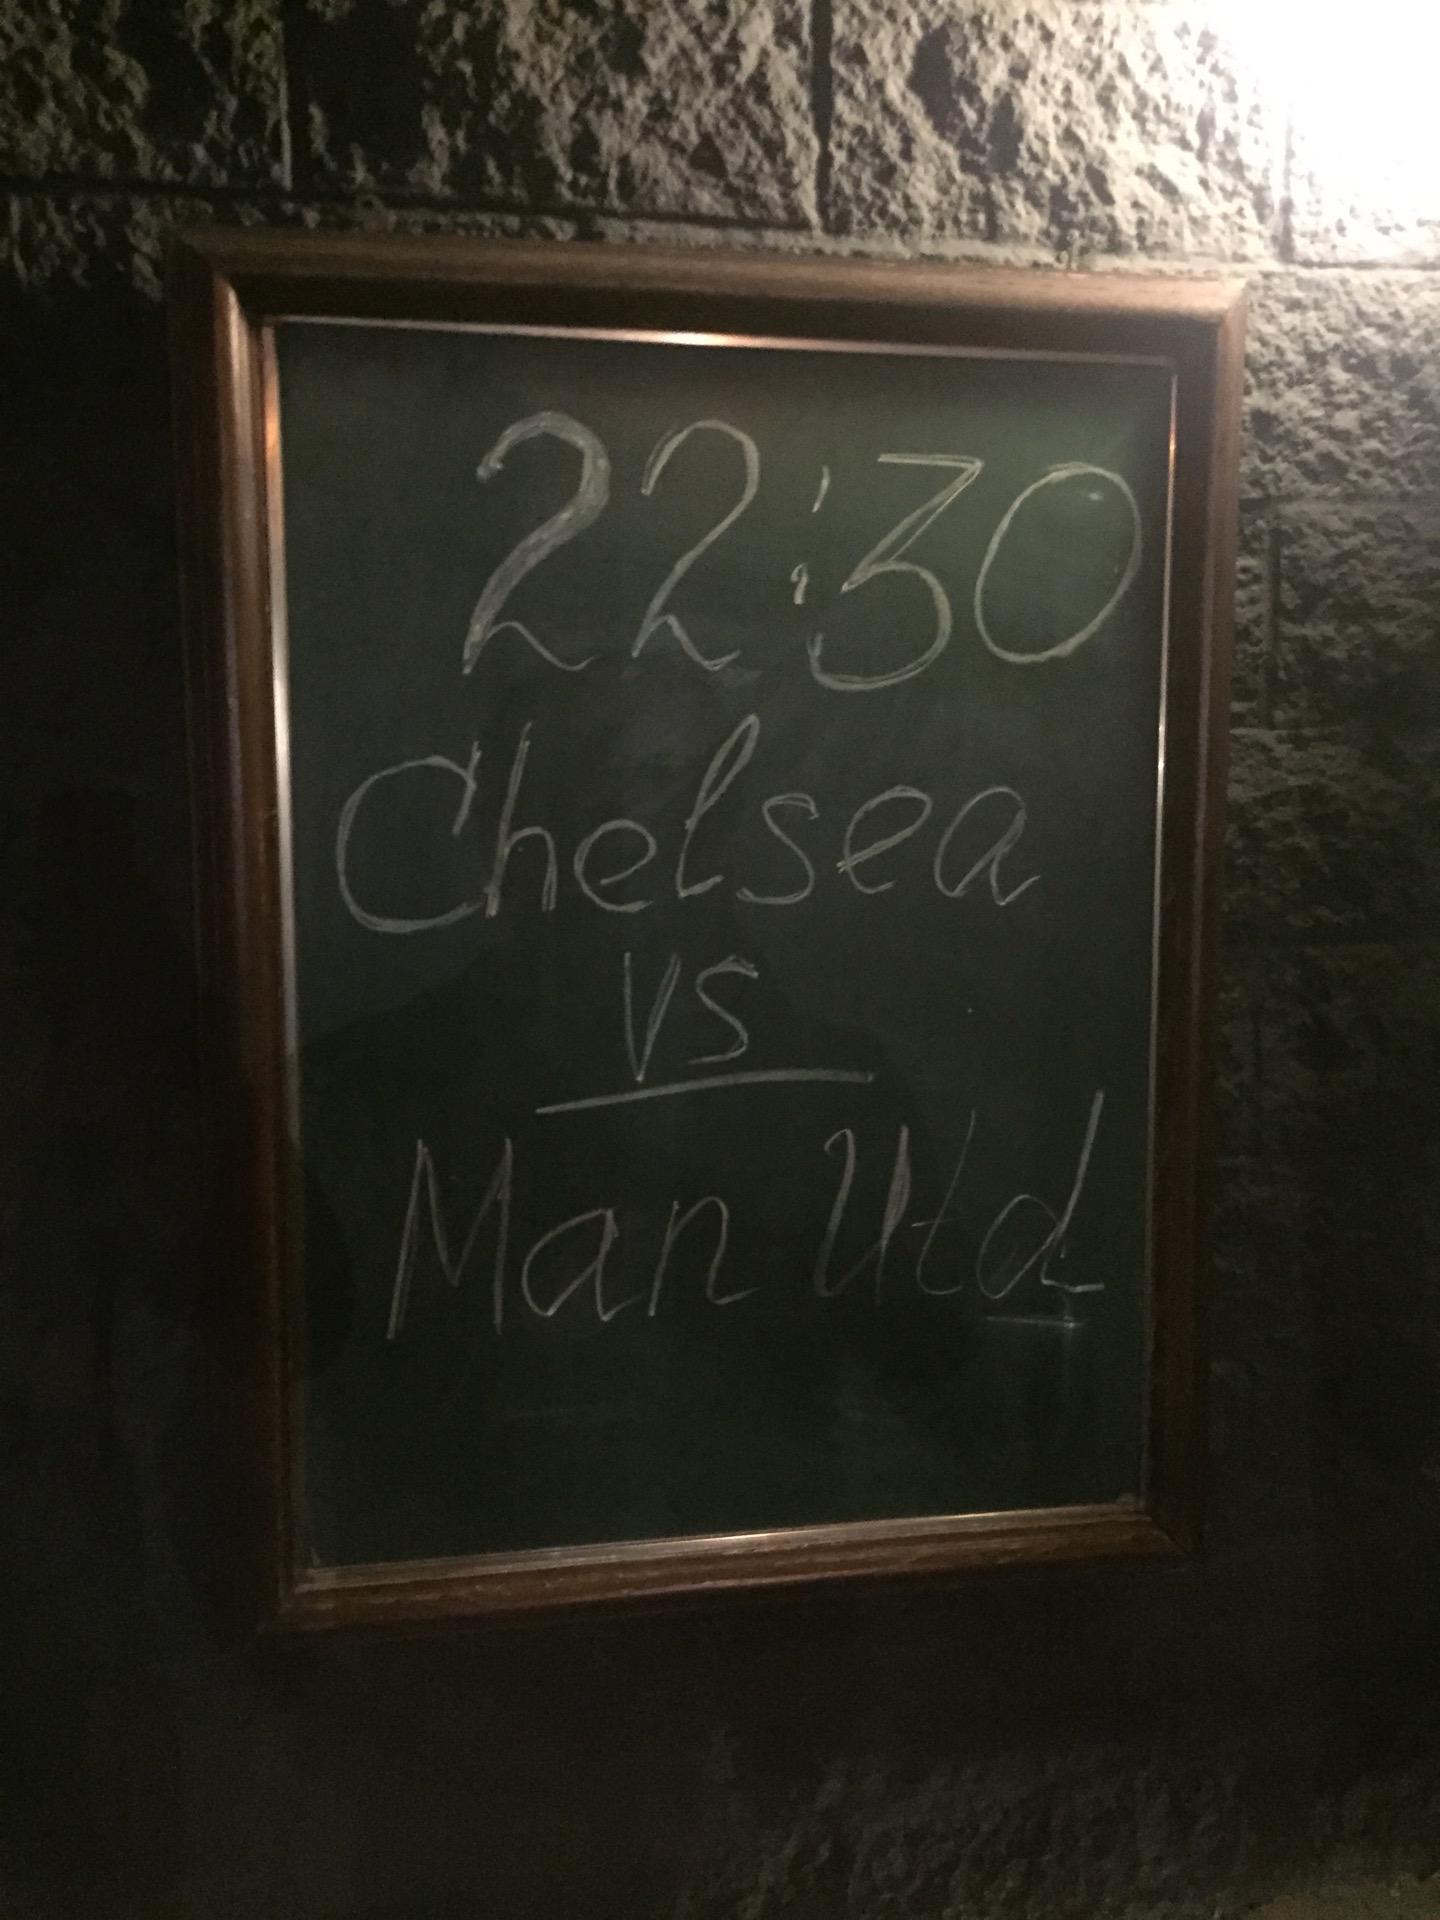 22:30
Chelsea
vs
Man Utd